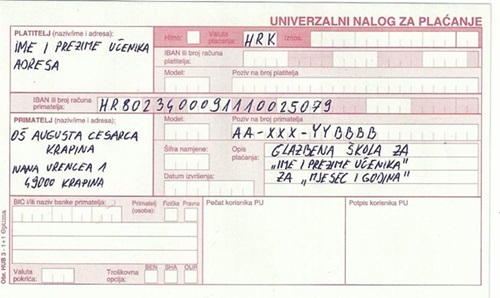 UNIVERZALNI NALOG ZA PLAĆANJE
PLATITELJ (naziv/ime i adresa):
IME I PREZIME UČENIKA
ADRESA
Hitno:
Valuta plaćanja:
HRK
Iznos:
IBAN ili broj računa platitelja:
Model:
Poziv na broj platitelja
IBAN ili broj računa primatelja:
HR8023400091110025079
PRIMATELJ (naziv/ime i adresa):
OŠ AUGUSTA CESARCA
KRAPINA
IVANA VRENCEA 1
49000 KRAPINA
Model:
Poziv na broj primatelja
AA-XXX-YYBBBB
Šifra namjene:
Opis plaćanja:
GLAZBENA ŠKOLA ZA
„IME I PREZIME UČENIKA"
ZA „MJESEC I GODINA"
Datum izvršenja:
BIC i/ili naziv banke primatelja:
Primatelj (osoba):
Fizička
Pravna
Pečat korisnika PU
Potpis korisnika PU
Valuta pokrića:
Troškovna opcija:
BEN
SHA
OUR
Obr. HUB 3 - 1+1